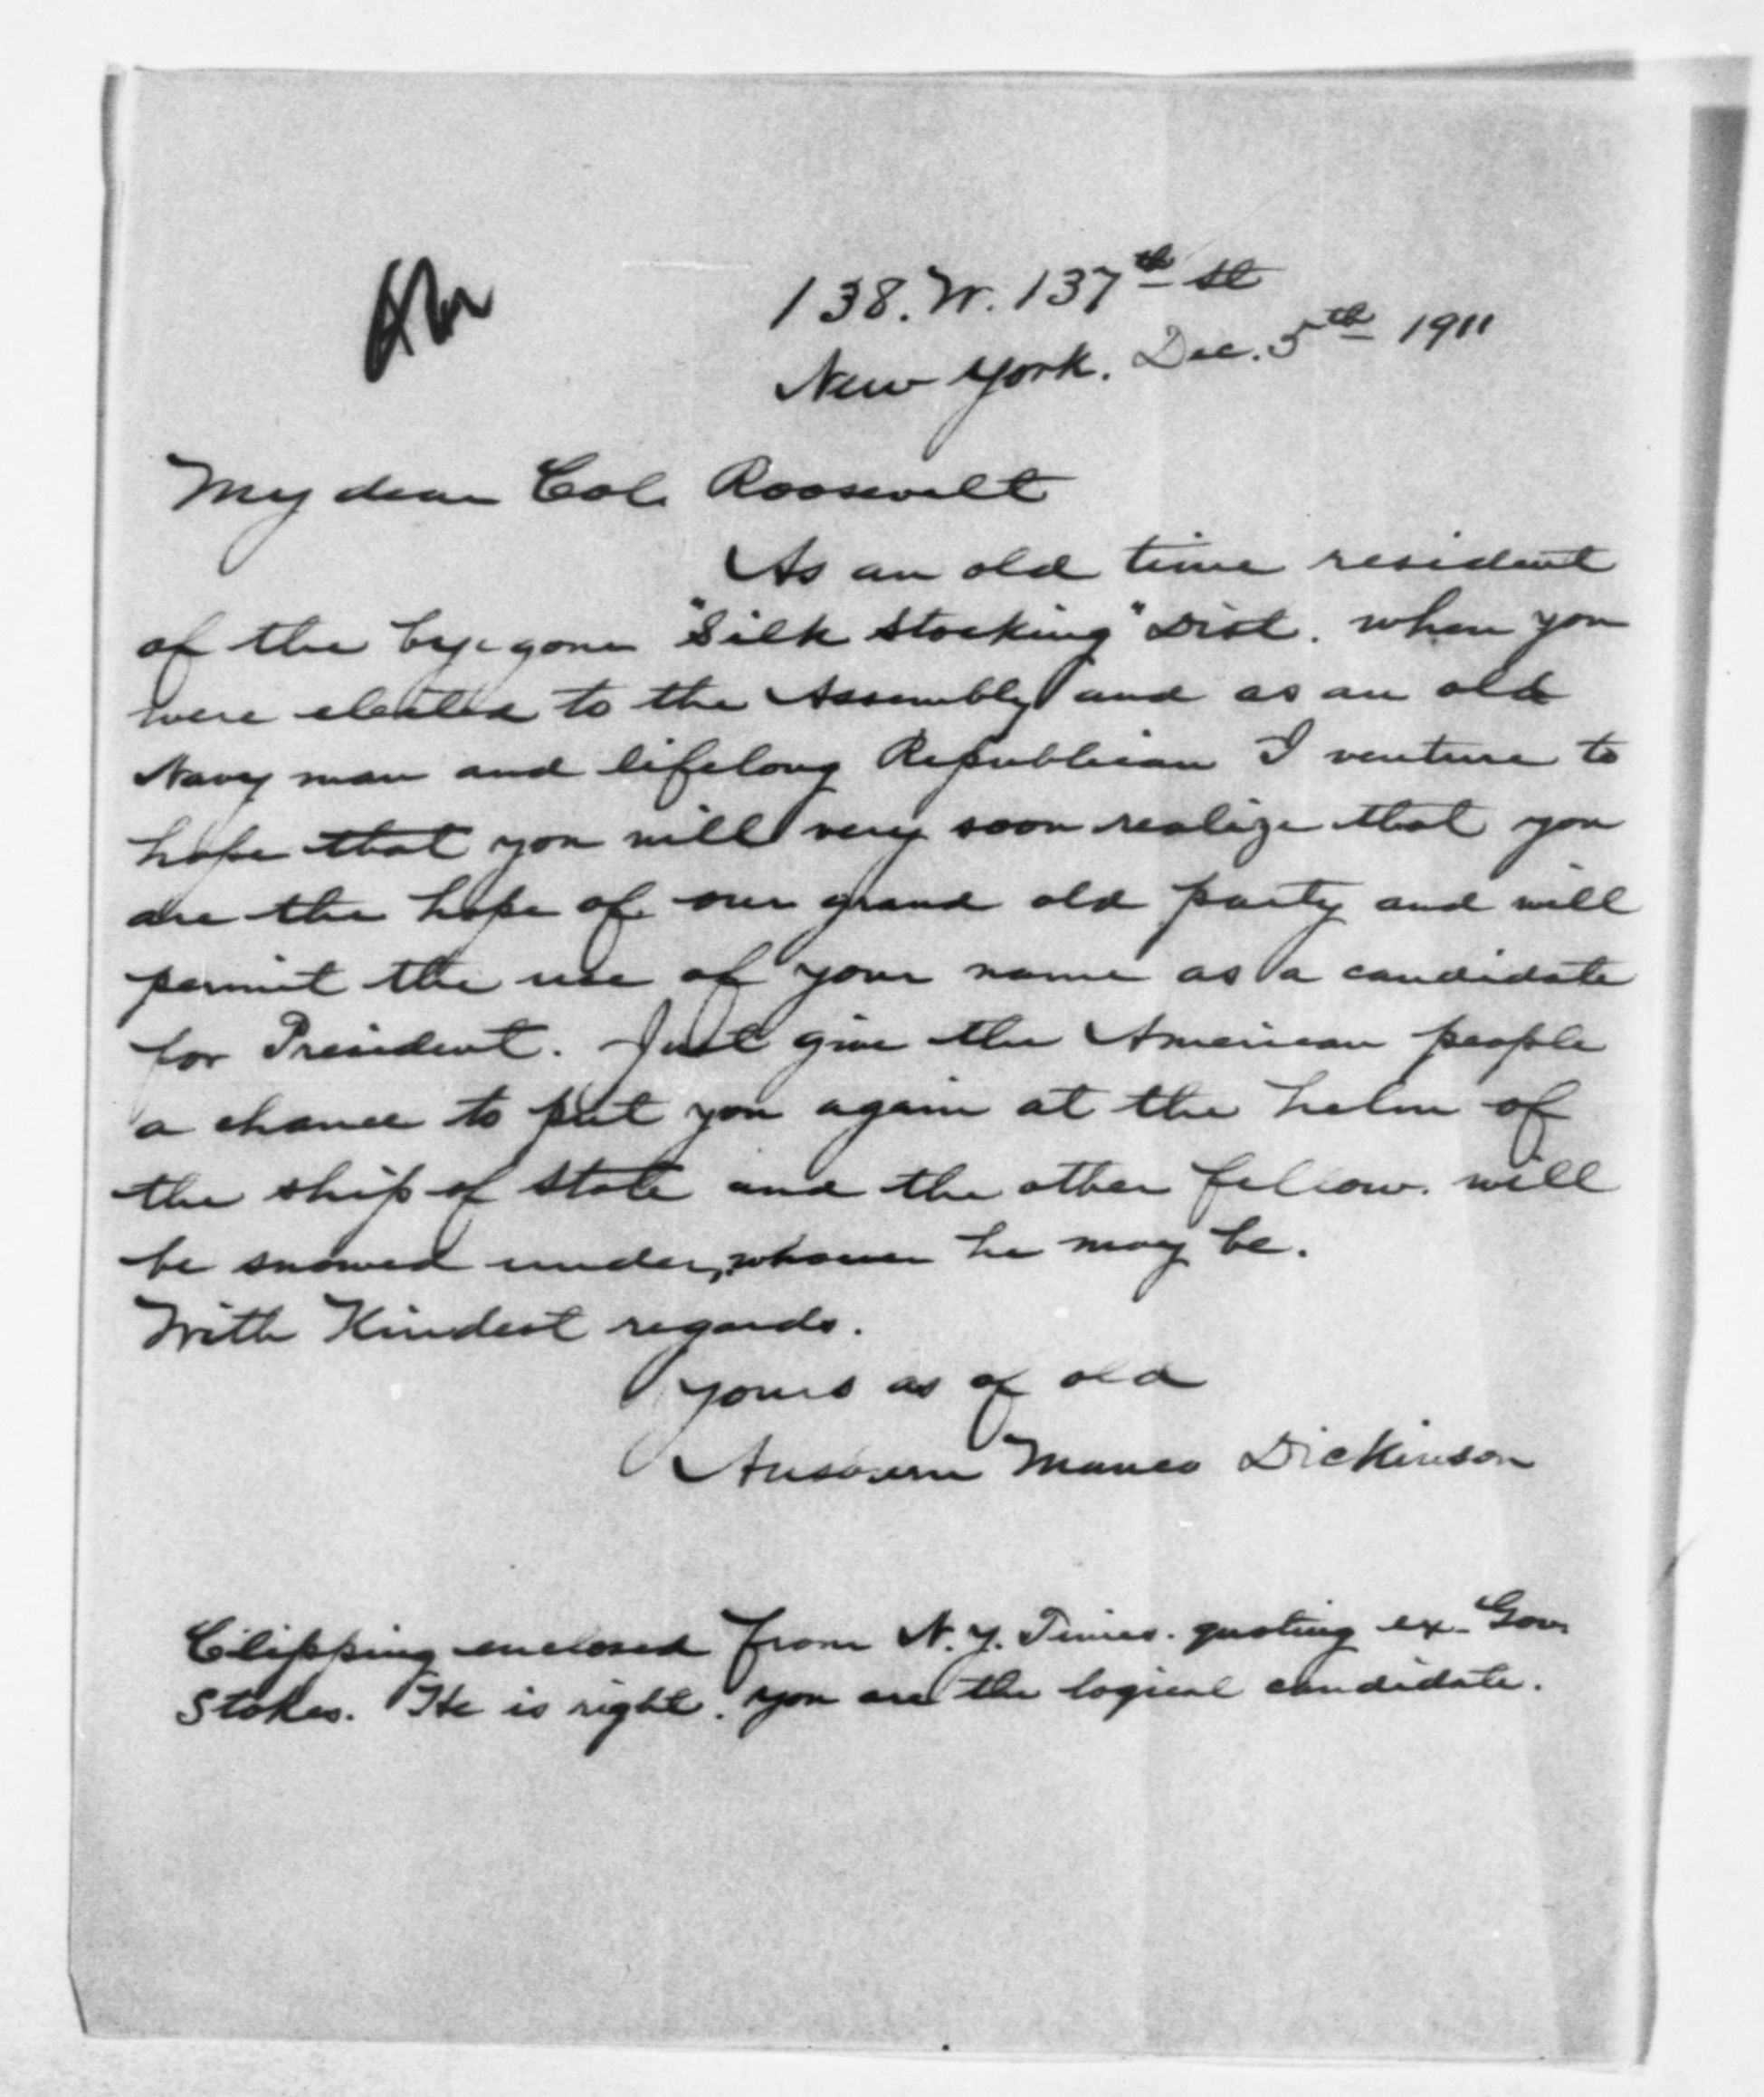 138. W. 137th St
New York. Dec. 5th 1911
My dear Col. Roosevelt
As an old time resident
of the bye gone "Silk Stocking" Dist. when you
were elected to the Assembly and as an old
Navy man and lifelong Republican I venture to
hope that you will very soon realize that you
are the hope of our grand old party and will
permit the use of your name as a candidate
for President. Just give the American people
a chance to put you again at the helm of
the ship of State and the other fellow will
be snowed under, whoever he may be.
With Kindest regards.
Yours as of old
Dickinson
Clipping enclosed from N.Y. Times. quoting ex-Gov.
Stokes. He is right. you are the logical candidate.